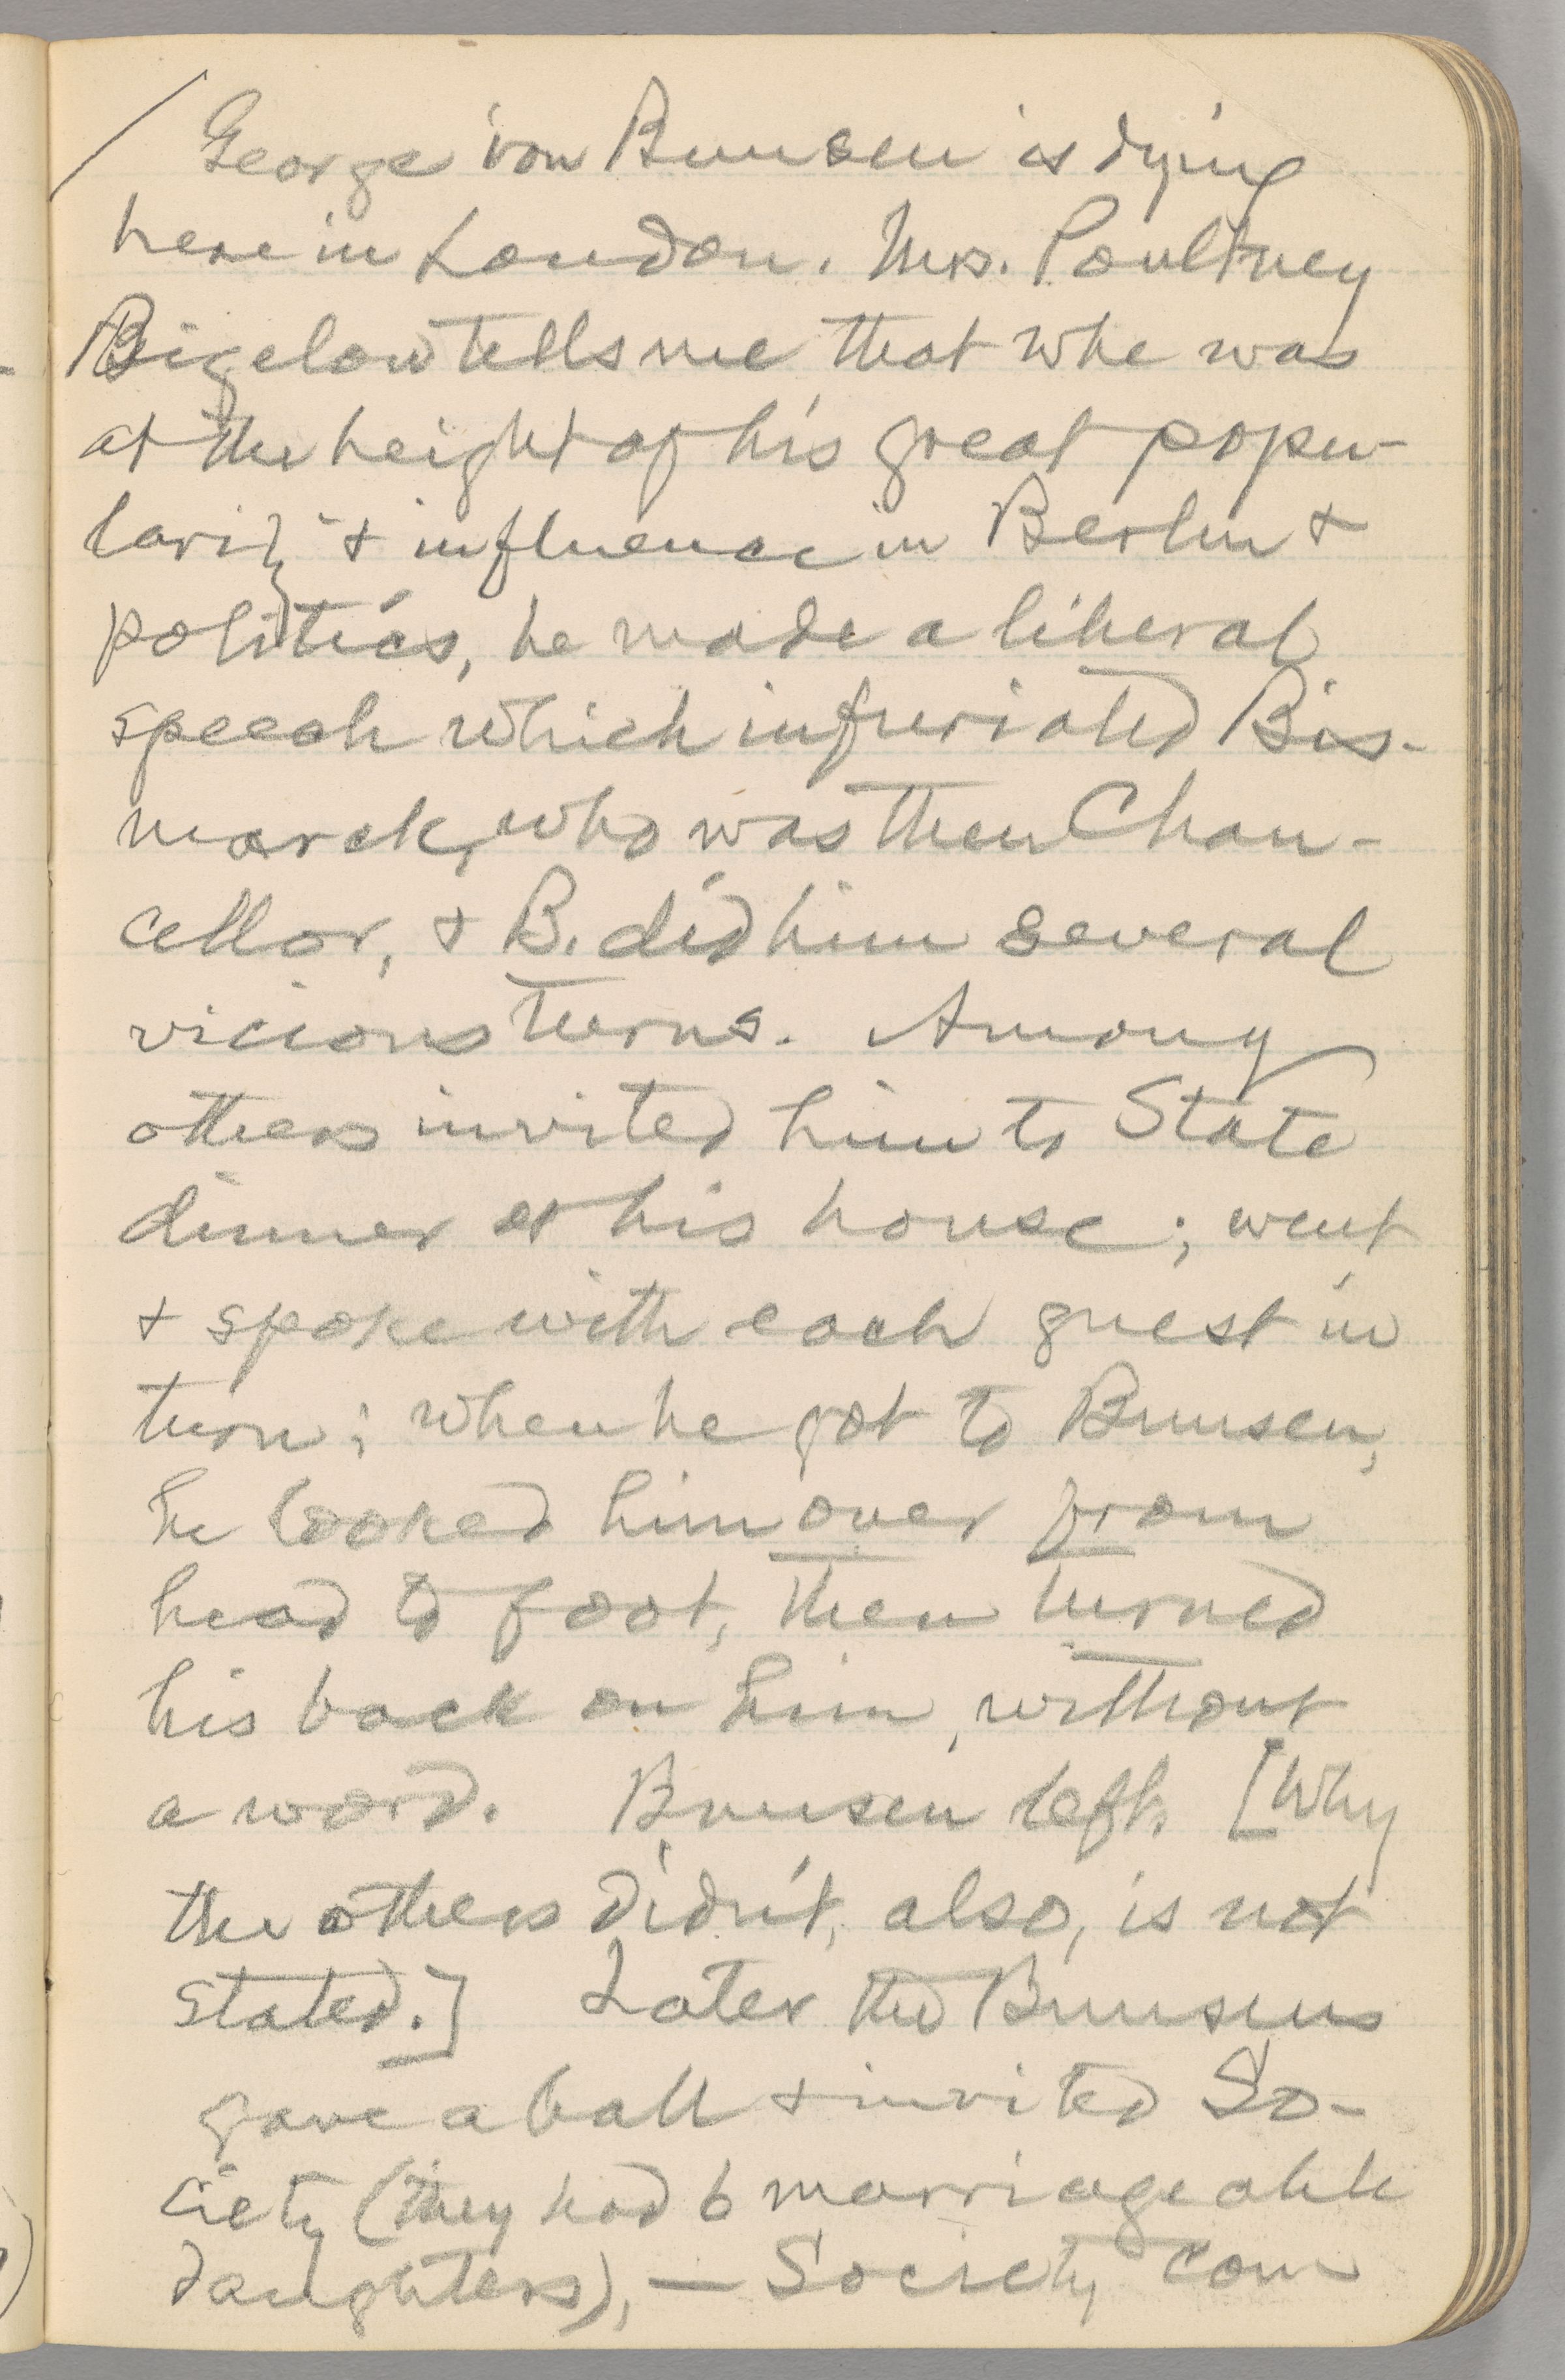 George von Bunsen is dying
here in London. Mrs. Poultney
Bigelow tells me that whe was
at the height of his great popu-
larity & influence in Berlin &
politics, he made a liberal
speech which infuriated Bis-
marck, who was then Chan-
cellor, & B. did him several
vicious turns. Among
others invited him to State
dinner at his house; went
& spoke with each guest in
turn; when he got to Bunsen,
he looked him over from
head to foot, then turned
his back on him, without
a word. Bunsen left. [Why
the others didn't, also, is not
stated.] Later the Bunsens
gave a ball & invited So-
ciety (they had 6 marriageable
daughters), — Society com